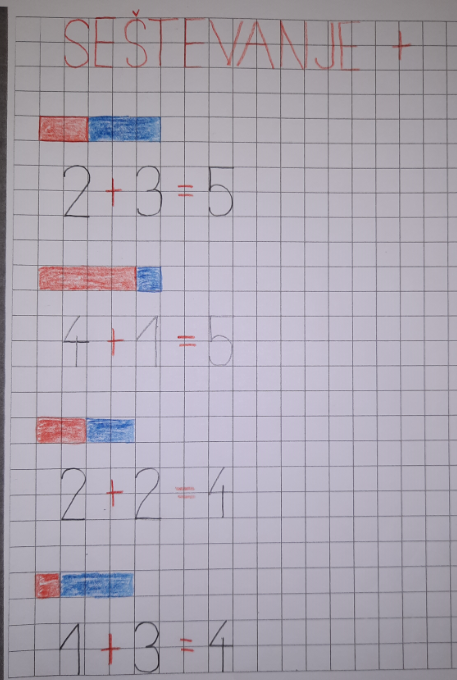 SEŠTEVANJE +
2 + 3 = 5
4 + 1 = 5
2 + 2 = 4
1 + 3 = 4